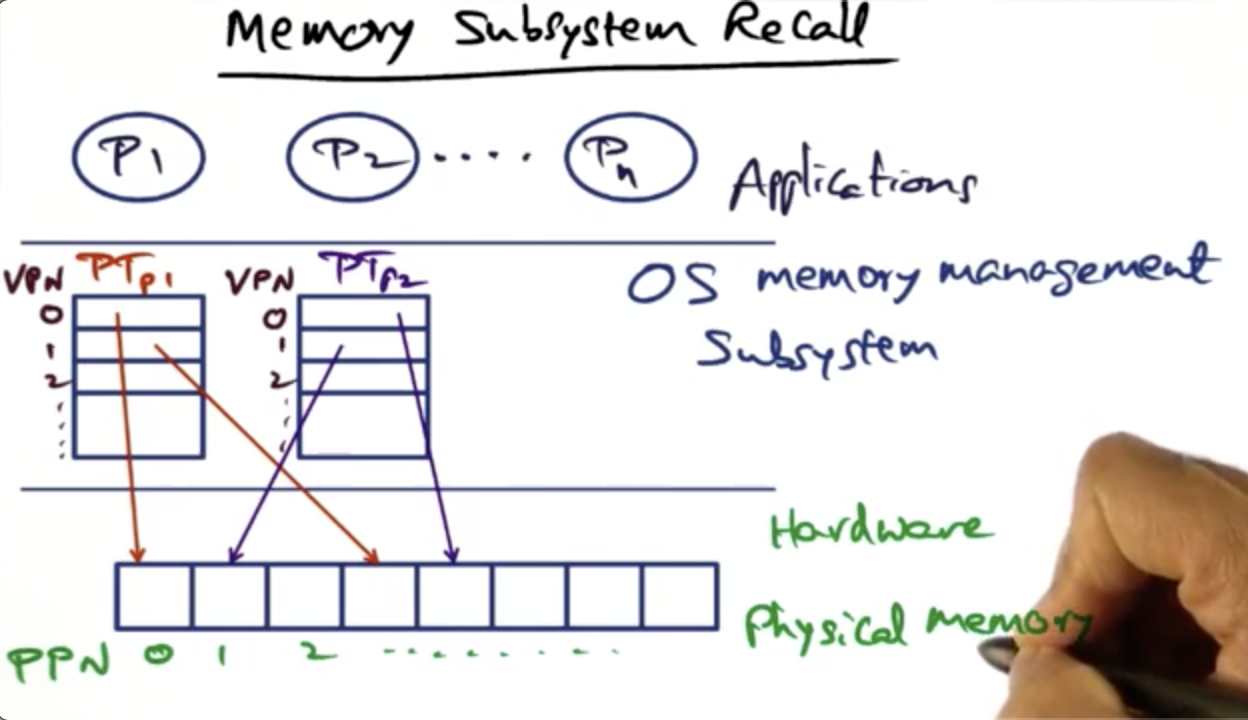 Memory Subsystem Recall
P1 P2 .... Pn
Applications
VPN PTP1 VPN PTP2
OS memory management
Subsystem
0 0
1 1
2 2
Hardware
Physical memory
PPN 0 1 2 ..........